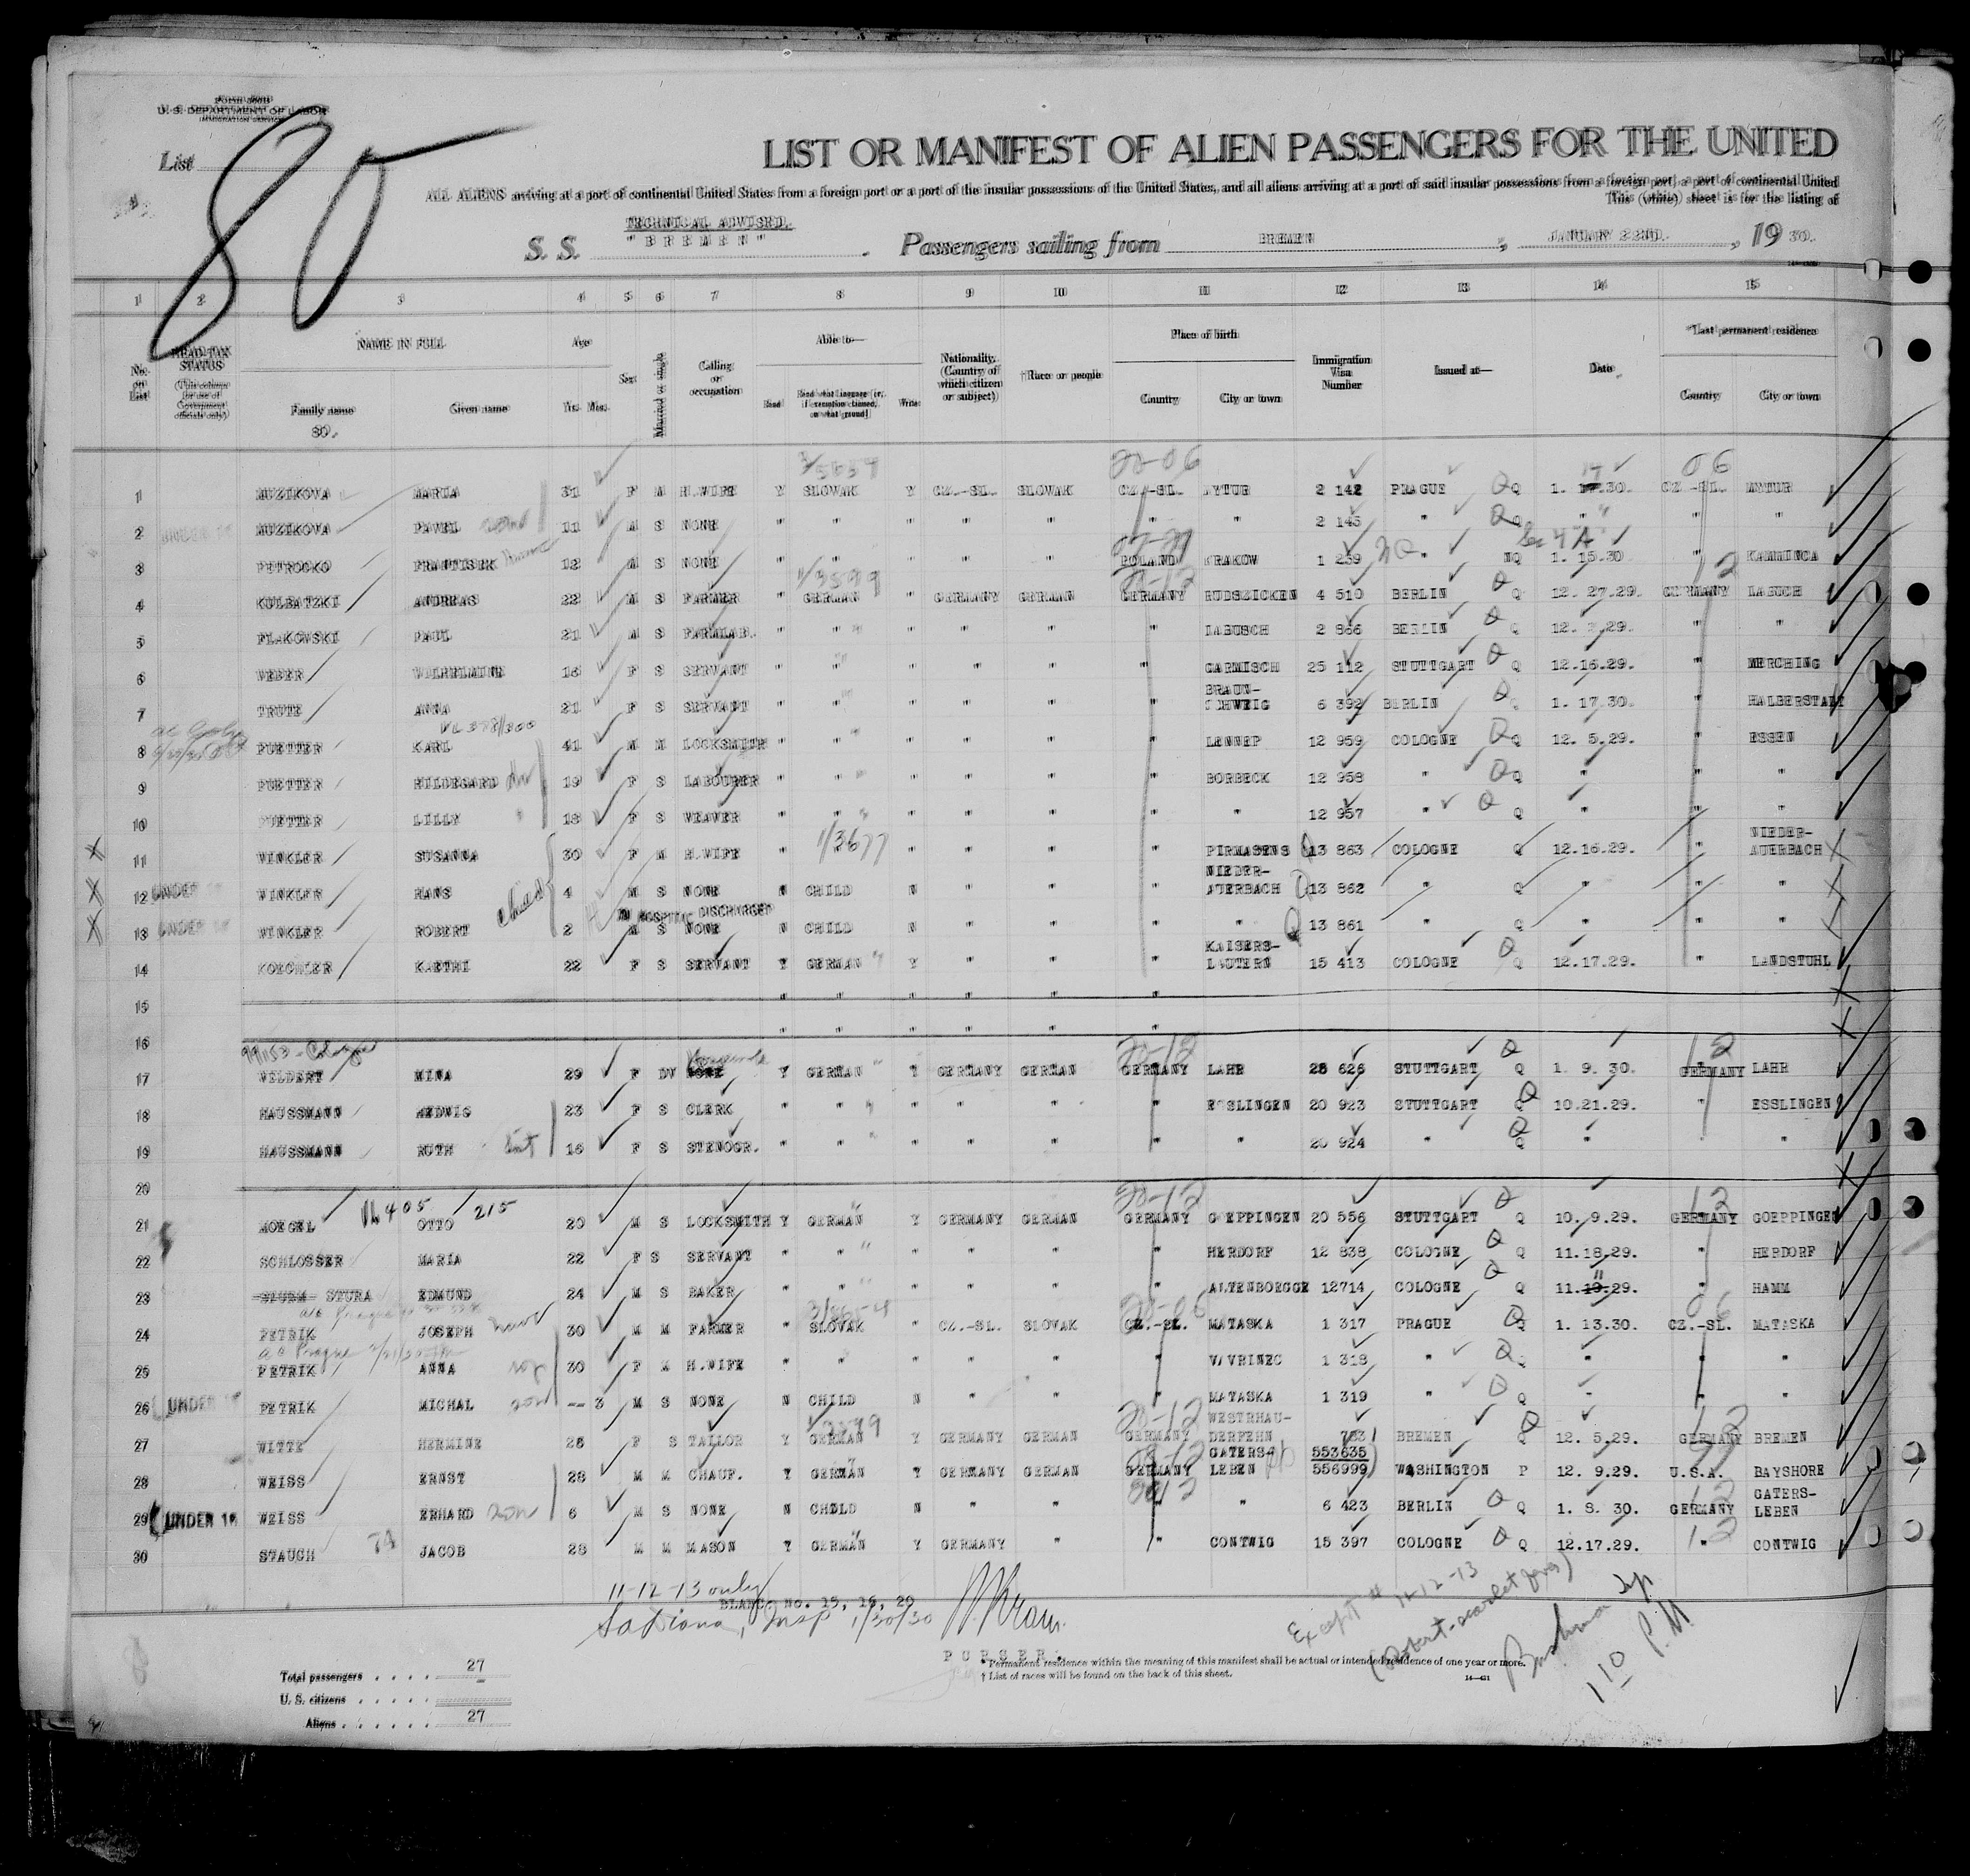 Form 500B
U. S. DEPARTMENT OF LABOR
IMMIGRATION SERVICE
List 80
LIST OR MANIFEST OF ALIEN PASSENGERS FOR THE UNITED
ALL ALIENS arriving at a port of continental United States from a foreign port or a port of the insular possessions of the United States, and all aliens arriving at a port of said insular possessions from a foreign port, a port of continental United
This (white) sheet is for the listing of
TECHNICAL ADVISRD.
S. S. "BREMEN". Passengers sailing from BREMEN, JANUARY 22ND., 1930.
1 2 3 4 5 6 7 8 9 10 11 12 13 14 15
No. on List
HEAD-TAX STATUS (This column for use of Government officials only)
NAME IN FULL
Family name
Given name
80.
Age
Yrs. Mos.
Sex
Married or single
Calling or occupation
Able to—
Read
Read what language [or, if exemption claimed, on what ground]
Write
Nationality. (Country of which citizen or subject)
†Race or people
Place of birth
Country
City or town
Immigration Visa Number
Issued at—
Date
*Last permanent residence
Country
City or town
20-06 06
1 MUZIKOVA MARIA 31 F M H.WIFE Y SLOVAK Y CZ.-SL. SLOVAK CZ.-SL. 2 142 PRAGUE Q 1. 30. CZ.-SL. MYTUR
2 UNDER 16 MUZIKOVA PAVEL son 11 M S NONE " " " " " " " 2 143 " Q " " "
3 PETROCKO FRANTISEK 12 M S NONE " " " " " POLAND KRAKOW 1 259 " NQ 1. 15.30 " KAMMINCA
4 KULBATZKI ANDREAS 22 M S FARMER " GERMAN " GERMANY GERMAN GERMANY RUDSZICKEN 4 510 BERLIN Q 12. 27.29. GERMANY LABUCH
5 PLAKOWSKI PAUL 21 M S FARMLAB. " " " " " " LABUSCH 2 866 BERLIN Q 12. 29. " "
6 WEBER WILHELMINE 18 F S SERVANT " " " " " " GARMISCH 25 112 STUTTGART Q 12.16.29. " MERCHING
7 TRUTE ANNA 21 F S SERVANT " " " " " " BRAUN-SCHWEIG 6 392 BERLIN 1. 17.30. " HALBERSTADT
8 PUETTER KARL 41 M M LOCKSMITH " " " " " " LENNEP 12 959 COLOGNE Q 12. 5.29. " ESSEN
9 PUETTER HILDEGARD 19 F S LABOURER " " " " " " BORBECK 12 958 " Q " " "
10 PUETTER LILLY 18 F S WEAVER " " " " " " " 12 957 " Q " "
11 WINKLER SUSANNA 30 F M H.WIFE " " " " " " PIRMASENS 13 863 COLOGNE Q 12.16.29. " NIEDER-AUERBACH
12 UNDER 16 WINKLER HANS child 4 M S NONE N CHILD N " " " NIEDER-AUERBACH 13 862 " Q " " "
IN HOSPITAL DISCHARGED
13 UNDER 16 WINKLER ROBERT 2 M S NONE N CHILD N " " " " 13 861 " Q " " "
14 KOECHLER KAETHI 22 F S SERVANT Y GERMAN Y " " " KAISERS-LAUTERN 15 413 COLOGNE Q 12.17.29. " LANDSTUHL
15 " " " " " "
16 " " " " " "
20-12 12
17 WILDERT MINA 29 F DV NONE Y GERMAN Y GERMANY GERMAN GERMANY LAHR 28 626 STUTTGART Q 1. 9. 30. GERMANY LAHR
18 HAUSSMANN HEDWIG 23 F S CLERK " " " " " " ESSLINGEN 20 923 STUTTGART Q 10.21.29. " ESSLINGEN
19 HAUSSMANN RUTH 16 F S STENOGR. " " " " " " " 20 924 " Q " " "
20
21 MOEGEL OTTO 20 M S LOCKSMITH Y GERMAN Y GERMANY GERMAN GERMANY GOEPPINGEN 20 556 STUTTGART Q 10. 9.29. GERMANY GOEPPINGEN
22 SCHLOSSER MARIA 22 F S SERVANT " " " " " " HERDORF 12 838 COLOGNE Q 11.18.29. " HERDORF
23 STURM STURA EDMUND 24 M S BAKER " " " " " " ALTENBOEGGE 12714 COLOGNE Q 11.19.29. " HAMM
24 PETRIK JOSEPH 30 M M FARMER " SLOVAK " CZ.-SL. SLOVAK CZ.-SL. MATASKA 1 317 PRAGUE Q 1. 13.30. CZ.-SL. MATASKA
25 PETRIK ANNA 30 F M H.WIFE " " " " " " VAVRINEC 1 318 " Q " " "
26 UNDER 16 PETRIK MICHAL son -- 3 M S NONE N CHILD N " " " MATASKA 1 319 " Q " " "
27 WITTE HERMINE 26 F S TAILOR Y GERMAN Y GERMANY GERMAN GERMANY WESTRHAU-DERFEHN 783 BREMEN Q 12. 5.29. GERMANY BREMEN
28 WEISS ERNST 28 M M CHAUF. Y GERMAN Y GERMANY GERMAN GERMANY GATERS-LEBEN 553635 556999 WASHINGTON P 12. 9.29. U.S.A. BAYSHORE
29 UNDER 16 WEISS ERHARD son 6 M S NONE N CHILD N " " " " 6 423 BERLIN Q 1. 8. 30. GERMANY GATERS-LEBEN
30 STAUCH JACOB 28 M M MASON Y GERMAN Y GERMANY " " CONTWIG 15 397 COLOGNE Q 12.17.29. " CONTWIG
11-12-13 only
BLANC. No. 15, 16, 20
Insp 1/30/30
PURSER.
Except # 11-12-13
110 P.M
* Permanent residence within the meaning of this manifest shall be actual or intended residence of one year or more.
† List of races will be found on the back of this sheet.
Total passengers 27
U. S. citizens
Aliens 27